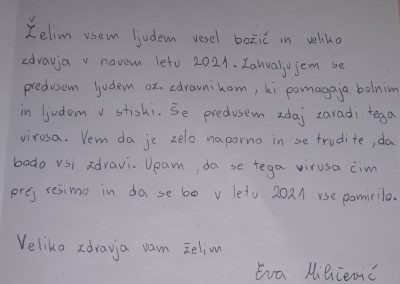 Želim vsem ljudem vesel božič in veliko
zdravja v novem letu 2021. Zahvaljujem se
predvsem ljudem oz. zdravnikom, ki pomagajo bolnim
in ljudem v stiski. Še predvsem zdaj zaradi tega
virusa. Vem da je zelo naporno in se trudite, da
bodo vsi zdravi. Upam, da se tega virusa čim
prej rešimo in da se bo v letu 2021 vse pomirilo.
Veliko zdravja vam želim
Eva Miličević